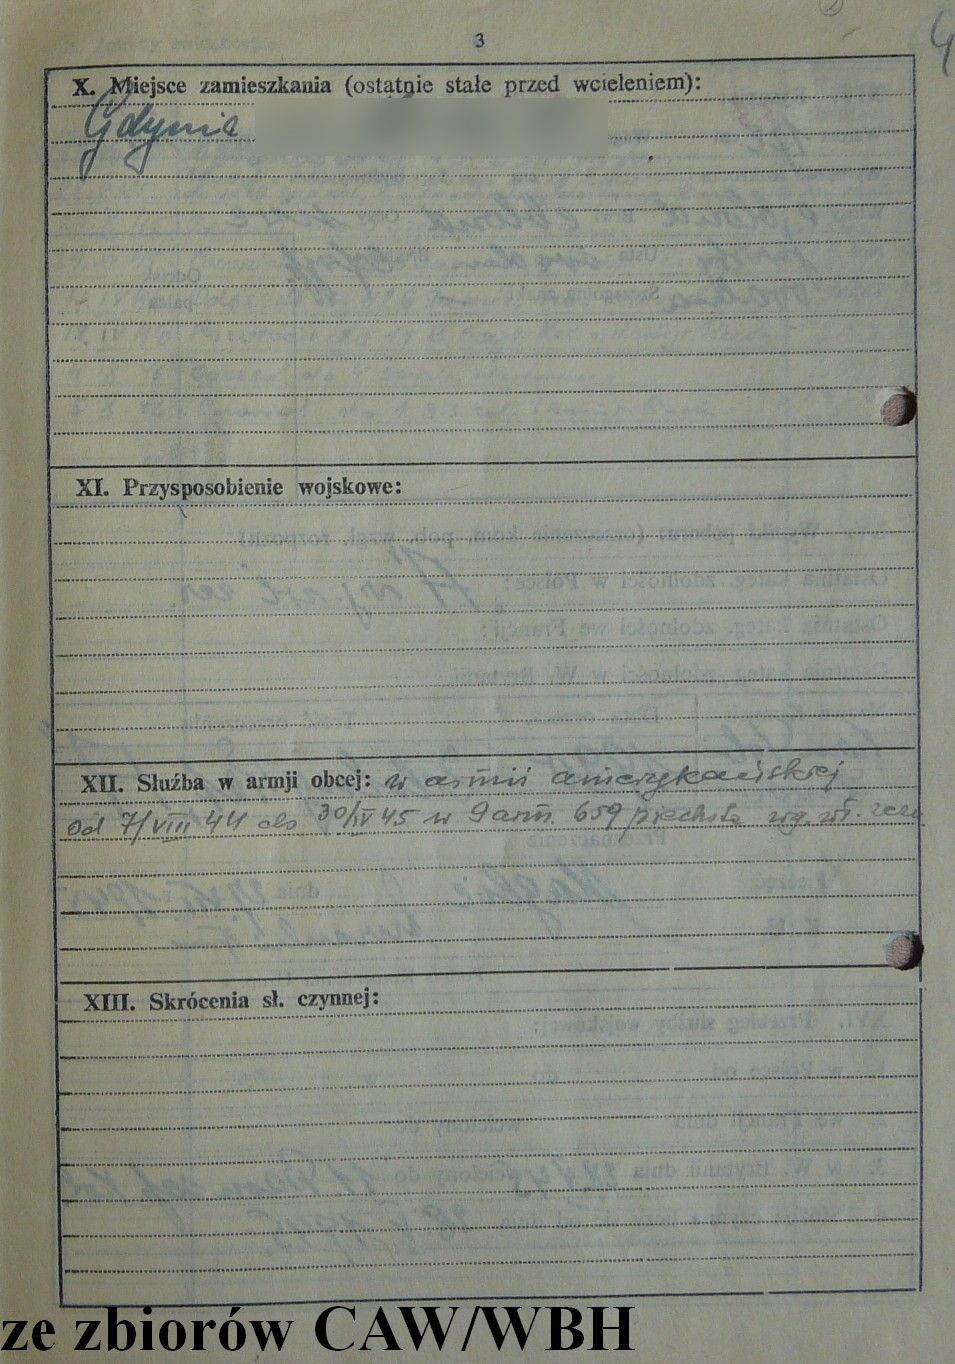 3
4
X. Miejsce zamieszkania (ostatnie stałe przed wcieleniem):
Gdynia
XI. Przysposobienie wojskowe:
XII. Służba w armji obcej: w armii amerykańskiej
od 7/VIII 44 do 30/IV 45 w 9 arm. 659 piechota wg. wł. zezn.
XIII. Skrócenia sł. czynnej:
ze zbiorów CAW/WBH